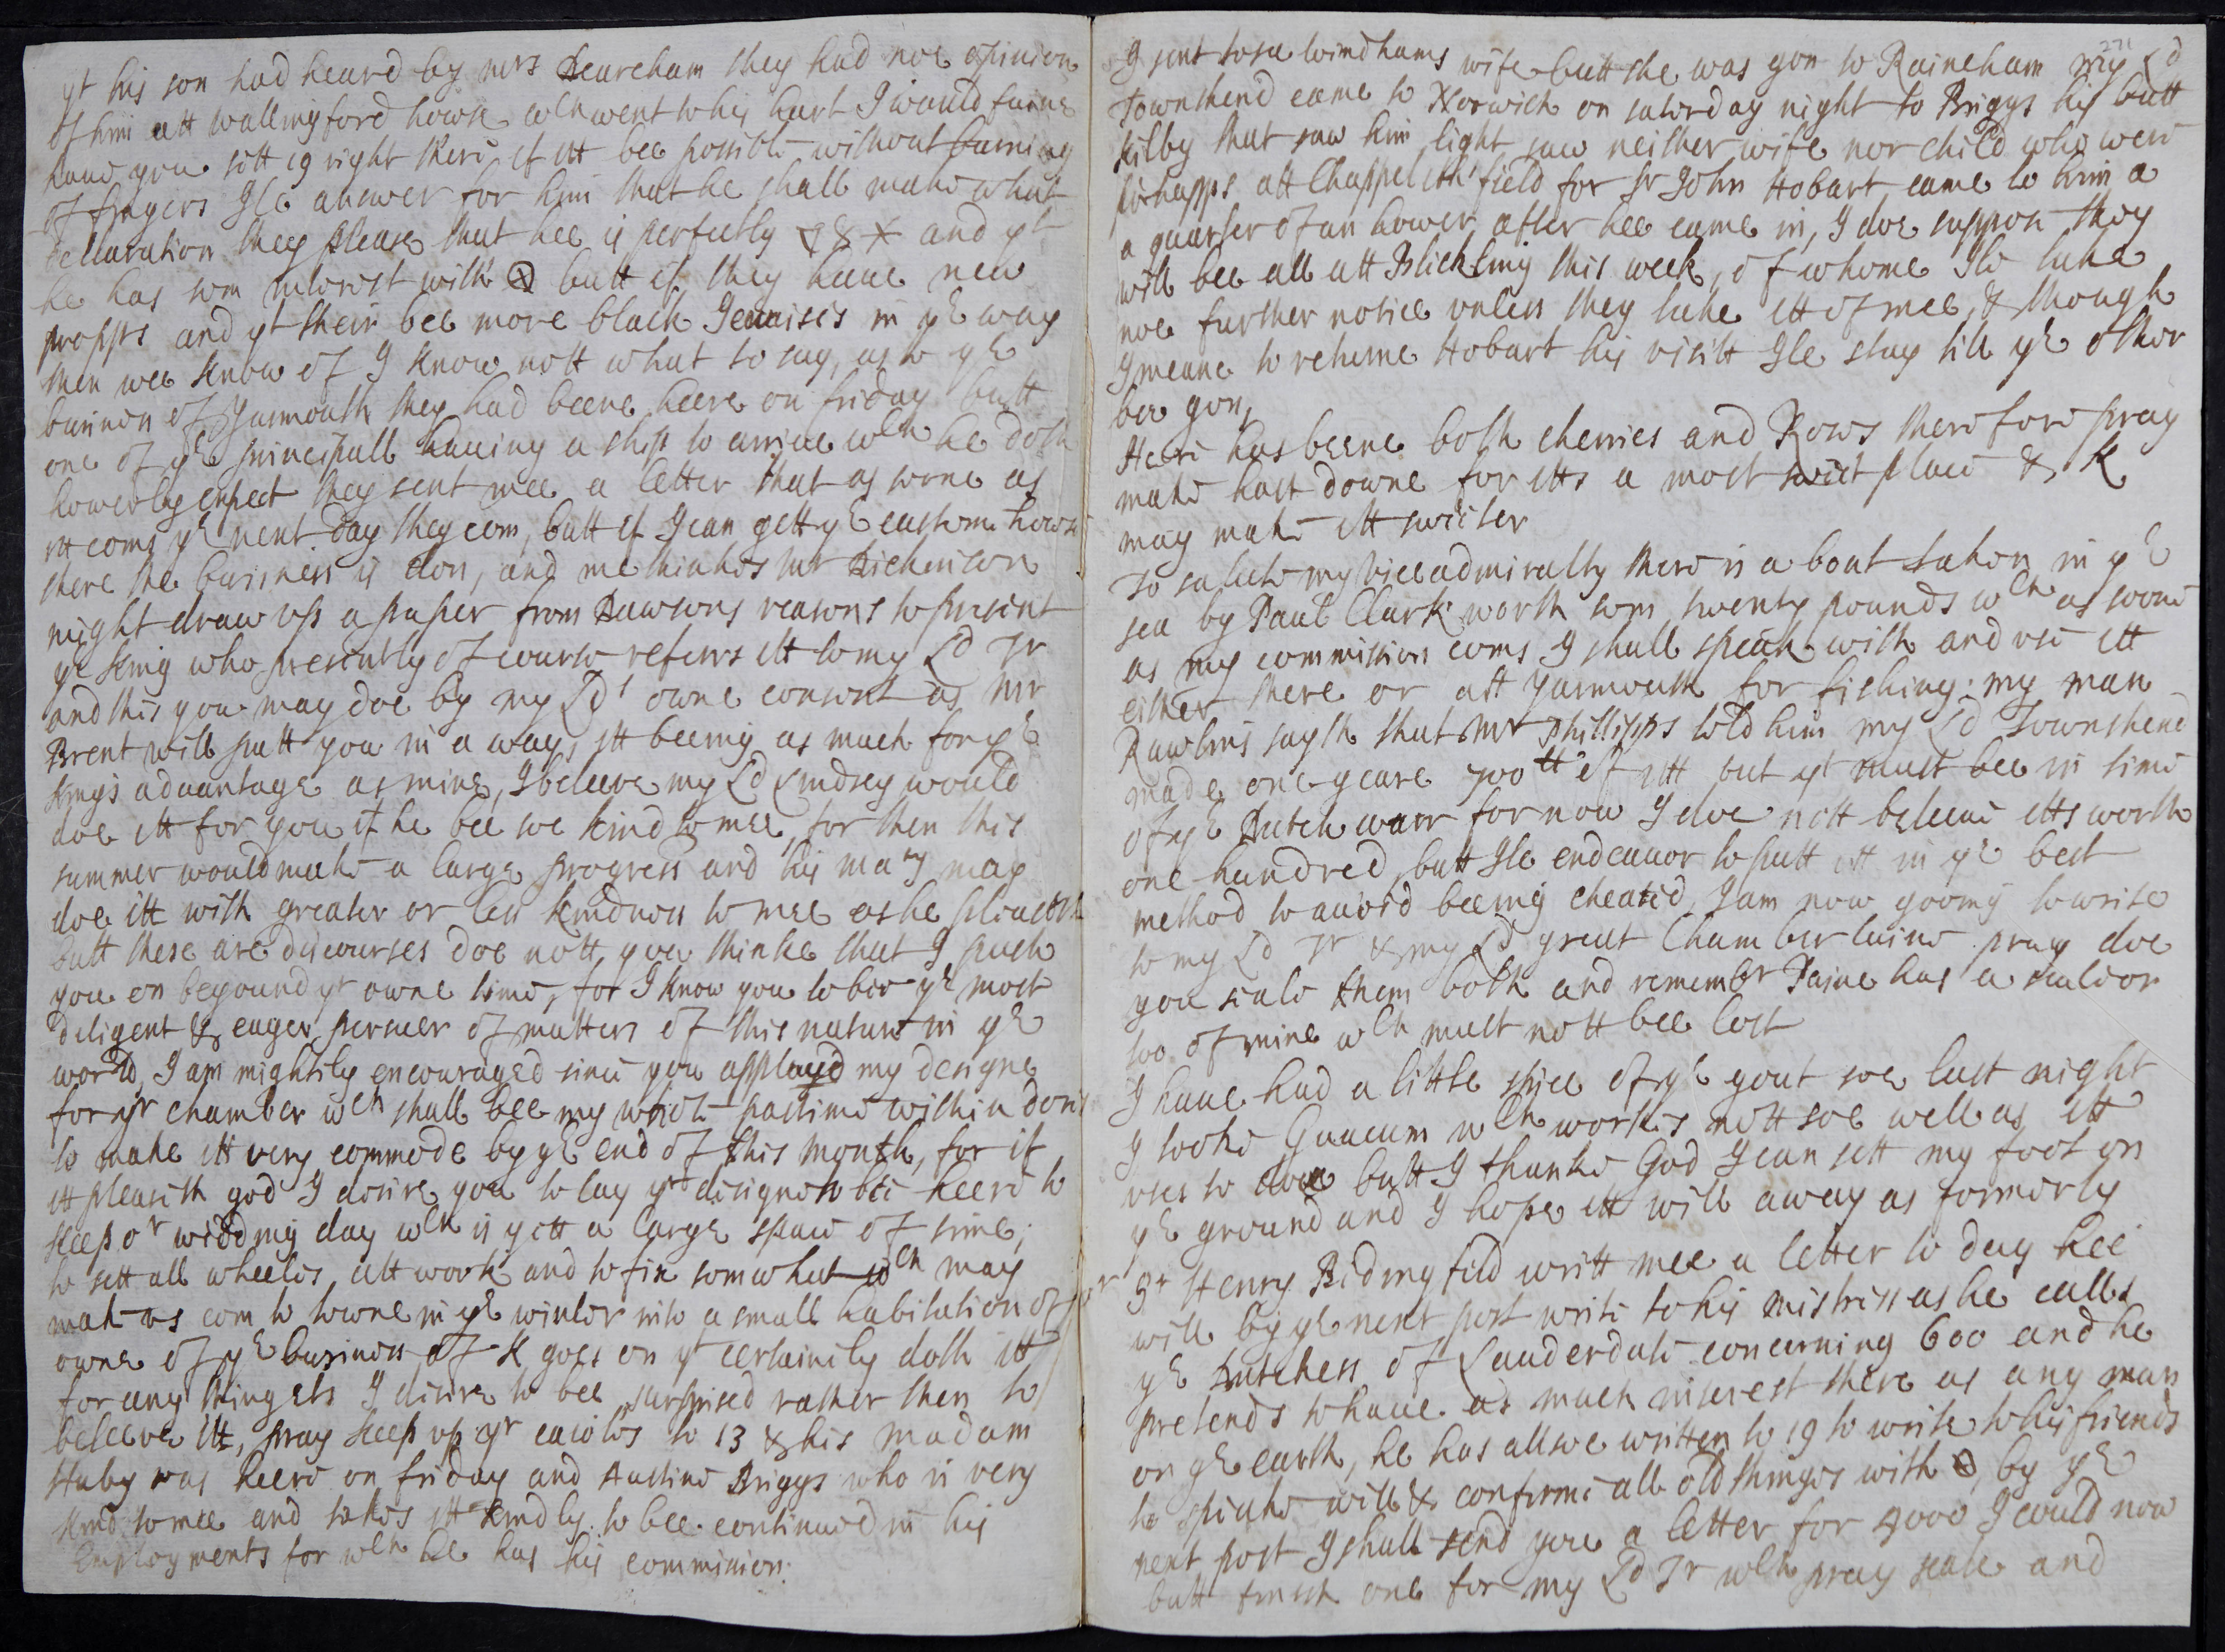 yt his son had heard by mrs Deareham they had noe opinion
of him att wallingford howse wch went to his hart I would faine
haue you sett 19 right there if itt bee possible without burning
of fingers Ile answer for him that he shall make what
declaration they please that hee is perfectly & and yt
he has som interest with butt if they haue new
propps and yt their bee more black Jenaises in ye way
then wee know of I know nott what to say, as to ye
businesse of Yarmouth they had beene heere on friday butt
one of ye principall hauing a ship to arriue wch he doth
howerly expect they sent mee a letter that as soone as
itt coms ye next day they com, butt if I can gett ye custome howse
there the business is don, and me thinkes mr Dickenson
might draw vp a paper from Dawsons reasons to present
ye king who presently of course refers itt to my Ld Tr
and this you may doe by my Lds owne consent as mr
Brent will putt you in a way, itt beeing as much for ye
kings aduantage as mine, I beleeve my Ld Lindsey would
doe itt for you if he bee soe kind to mee, for then this
summer would make a large progress and his maty may
doe itt with greater or less kindness to mee as he pleaseth
butt these are discourses doe nott you thinke that I push
you on beyound yr owne time, for I know you to bee ye most
diligent & eager persuer of matters of this nature in ye
world, I am mightily encouraged since you applayd my designe
for yr chamber wch shall bee my whole pastime within dores
to make itt very commode by ye end of this month, for if
itt pleaseth god I desire you to lay yr designe to bee heere to
keep or wedding day wch is yett a large space of time,
to sett all wheeles att work and to fix somwhat wch may
make vs com to towne in ye winter into a small habitation of or
owne if ye businesse of K goes on yt certainely doth itt
for any thing els I desire to bee surprised rather then to
beleeve itt, pray keep vp yr caioles to 13 & his madam
Huby was heere on friday and Austine Briggs who is very
kind to mee and takes itt kindly to bee continued in his
Employments for wch he has his commission.
271
I sent to see windhams wife butt she was gon to Raineham my Ld
Townshend came to Norwich on saterday night to Briggs his butt
kilby that saw him light saw neither wife nor child who were
perhapps att Chappel ith field for Sr John Hobart came to him a
a quarter of an hower after hee came in, I doe suppose they
will bee all att Blickling this week, of whome Ile take
noe further notice vnless they take itt of mee, & though
I meane to returne Hobart his visitt Ile stay till ye other
bee gon,
Heere has beene both cherries and Rows therefore pray
make hast downe for itts a most sweet place & K
may make itt sweeter
To salute my viceadmiralty there is a boat taken in ye
sea by Paul Clark worth som twenty pounds wch as soone
as my commission coms I shall speake with and use itt
either there or att Yarmouth for fishing: my man
Rawlins sayth that Mr Phillipps told him my Ld Townshend
made one yeare 700ll of itt but yt must bee in time
of ye Dutch warr for now I doe nott beleeue itts worth
one hundred, butt Ile endeauor to putt itt in ye best
method to auoid beeing cheated, I am now gooing to write
to my Ld Tr & my Ld great Chamberlaine pray doe
you seale them both and remembr Paine has a seale or
two of mine wch must nott bee lost
I haue had a little spice of ye gout soe last night
I tooke Guacum wch workes nott soe well as itt
vses to doe butt I thanke God I can sett my foot on
ye ground and I hope itt will away as formerly
Sr Henry Bedingfild writt mee a letter to day hee
will by ye next post write to his mistriss as he calls
ye Dutchess of Lauderdale concerning 600 and he
pretends to haue as much interest there as any man
on ye earth, he has allsoe written to 19 to write to his friends
to speake with & confirme all old thinges with by ye
next post I shall send you a letter for 4000 I could now
butt finish one for my Ld Tr wch pray seale and